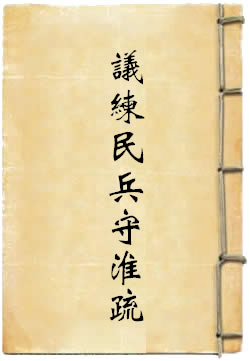 議練民兵守淮疏